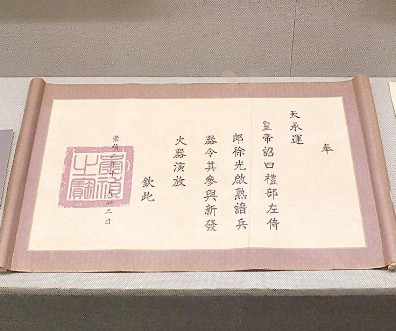 奉
天承運
皇帝詔曰禮部左侍
郎徐光啟熟諳兵
器令其參與新發
火器演放
欽此
崇禎
二日
崇禎之寶